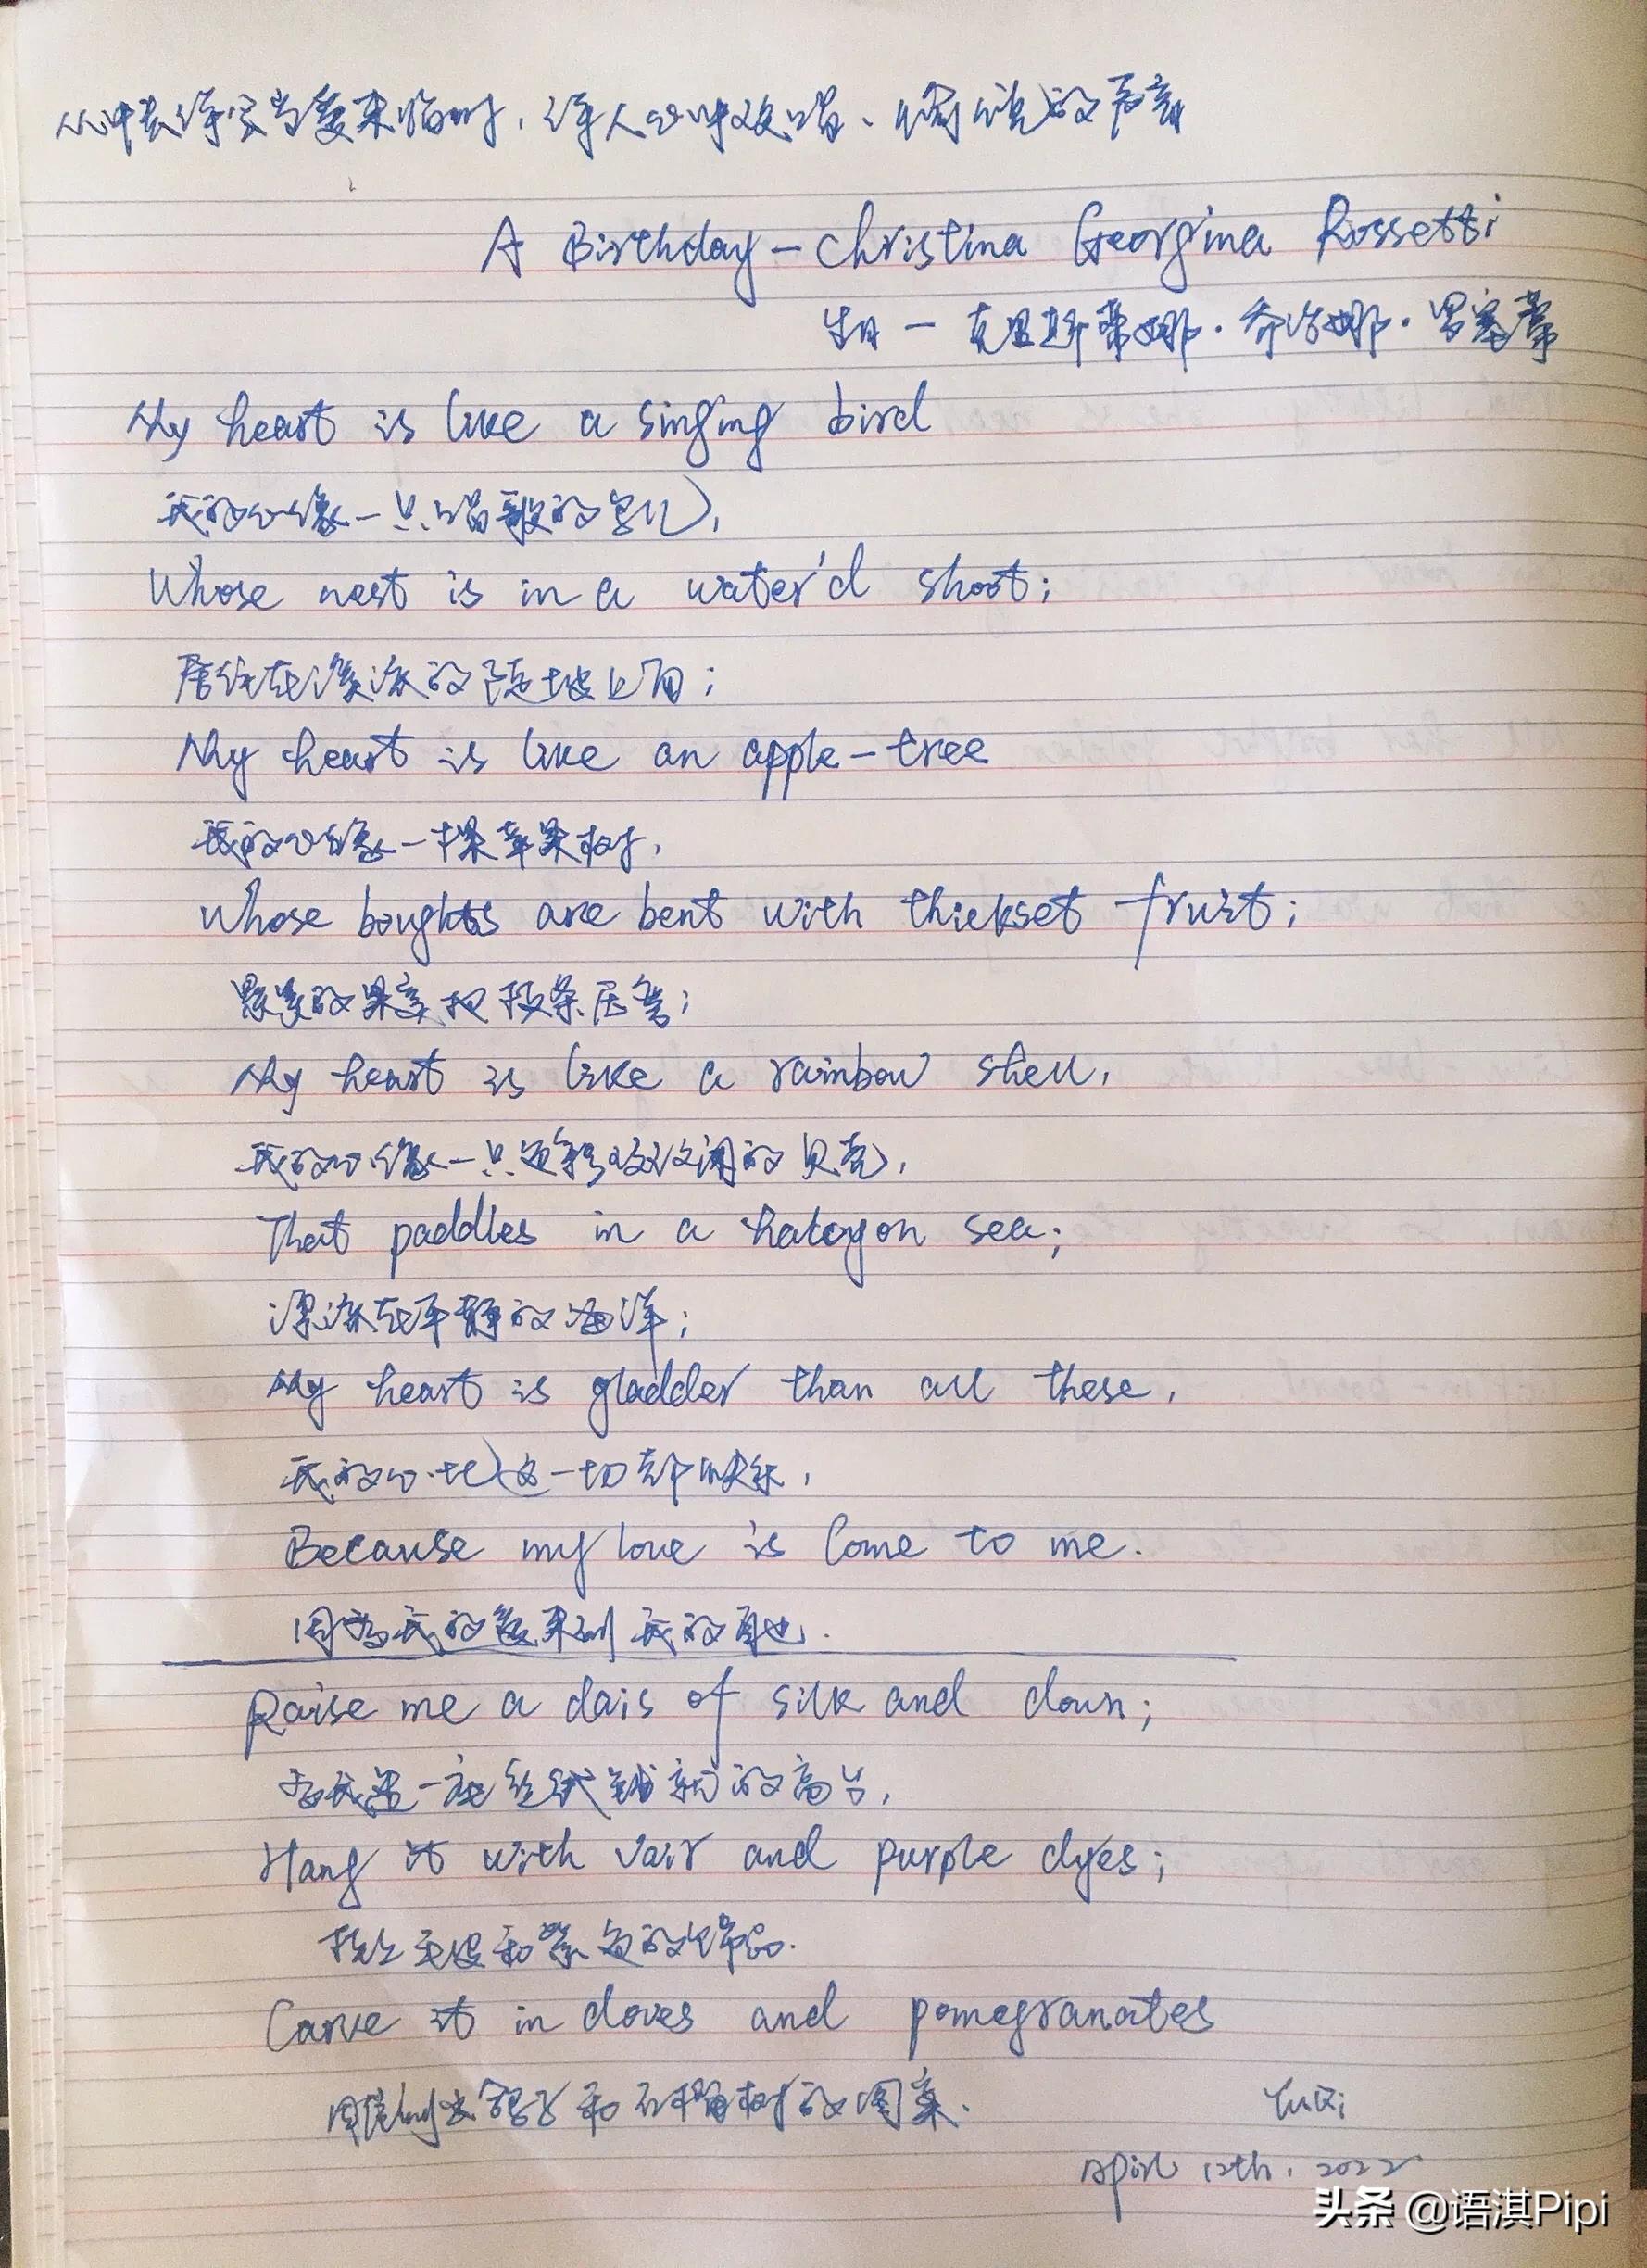 从中去传字当爱来临时，诗人心中欢唱、愉悦的声音
A Birthday — Christina Georgina Rossetti
生日 — 克里斯蒂娜·乔治娜·罗塞蒂
My heart is like a singing bird
我的心像一只唱歌的鸟儿，
Whose nest is in a water'd shoot;
居住在溪流的陡坡上面；
My heart is like an apple-tree
我的心像一棵苹果树，
Whose boughts are bent with thickset fruit;
累累的果实把枝条压弯；
My heart is like a rainbow shell,
我的心像一只色彩斑斓的贝壳，
That paddles in a halcyon sea;
漂流在平静的海洋；
My heart is gladder than all these,
我的心比这一切都快乐，
Because my love is come to me.
因为我的爱来到我的身边.
Raise me a dais of silk and down;
为我造一座丝绒铺就的高台，
Hang it with vair and purple dyes;
挂上毛皮和紫色的饰品.
Carve it in doves and pomegranates
鸽子和石榴树的图案.
YuQi
April 12th, 2022
头条 @语淇Pipi